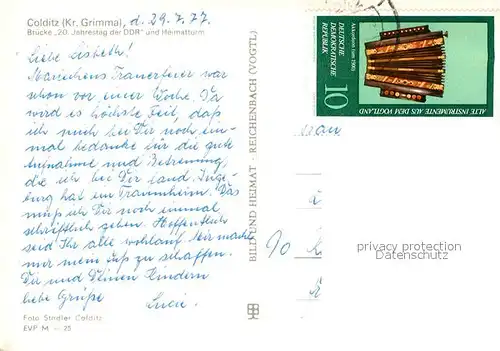 Colditz (Kr. Grimma), d. 29.7.77
Brücke „20. Jahrestag der DDR" und Heimatturm
Liebe Lisbeth!
Mariechens Trauerfeier war
schon vor einer Woche. Da
wird es höchste Zeit, daß
ich mich bei Dir noch ein-
mal bedanke für die gute
Aufnahme und Betreuung,
die ich bei Dir fand. Inge-
burg hat ein Traumheim. Das
muß ich Dir noch einmal
schriftlich geben. Hoffentlich
seid Ihr alle wohlauf. Mir macht
mein zu schaffen.
Dir und Deinen Kindern
liebe Grüße
Luzie.
Foto Stadler Colditz
EVP M -.25
BILD UND HEIMAT · REICHENBACH (VOGTL)
10
DEUTSCHE
DEMOKRATISCHE
REPUBLIK
Akkordeon (um 1900)
ALTE INSTRUMENTE AUS DEM VOGTLAND
90
privacy protection
SAMMLER.COM